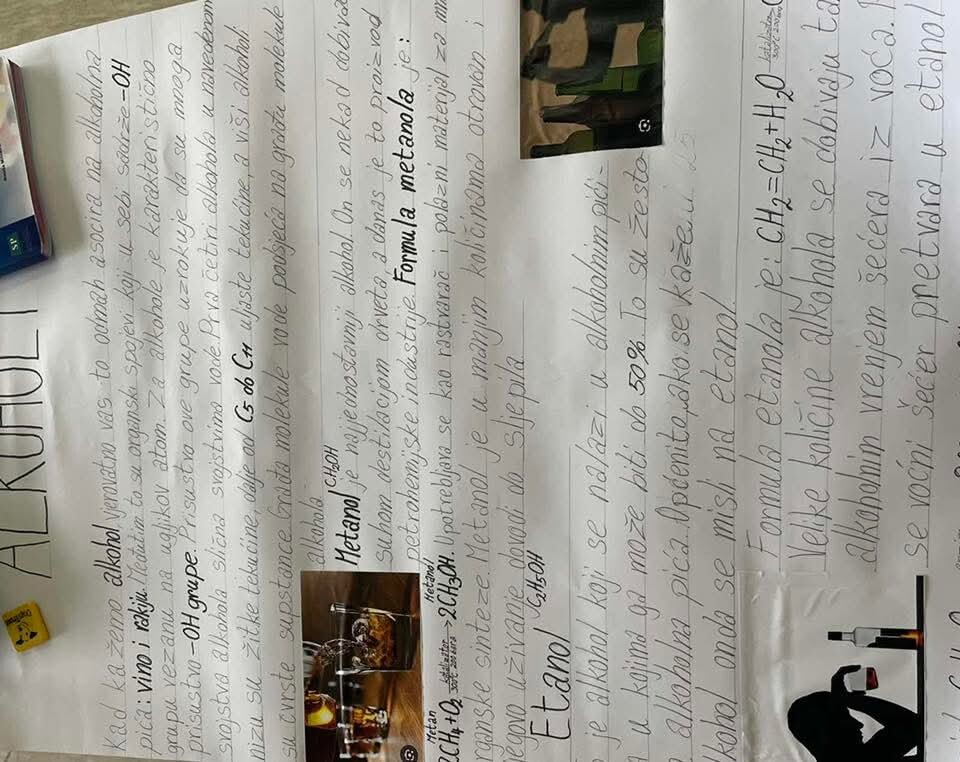 ALKOHOLI
Kad ka žemo alkohol vjerovatno vas to odmah asocira na alkoholna
pića: vino i rakiju. Međutim to su organski spojevi koji u sebi sadrže-OH
grupu vezanu na ugljikov atom. Za alkohole je karakteristično
prisustvo-OH grupe. Prisustvo ove grupe uzrokuje da su mnoga
svojstva alkohola slična svojstvima vode. Prva četiri alkohola u navedenom
nizu su žitke tekućine, dalje od C5 do C11 uljaste tekućine, a viši alkoholi
su čvrste supstance. Građa molekule vode podsjeća na građu molekule
alkohola.
Metanol CH3OH je najjednostavniji alkohol. On se nekad dobivao
suhom destilacijom drveta a danas je to proizvod
petrohemijske industrije. Formula metanola je:
Metan Metanol
2CH4+O2 katalizator 300°C 200 bara -> 2CH3OH. Upotrebljava se kao rastvarač i polazni materijal za
organske sinteze. Metanol je u manjim količinama otrovan i
njegovo uživanje dovodi do sljepila.
Etanol C2H5OH
je alkohol koji se nalazi u alkoholnim pići-
u kojima ga može biti do 50%. To su žestoka
alkoholna pića. Općenito, ako se kaže
alkohol onda se misli na etanol.
Formula etanola je: CH2=CH2+H2O katalizator 300°C 200
Velike količine alkohola se dobivaju
alkohonim vrenjem šećera iz voća.
se voćni šećer pretvara u etanol
SP